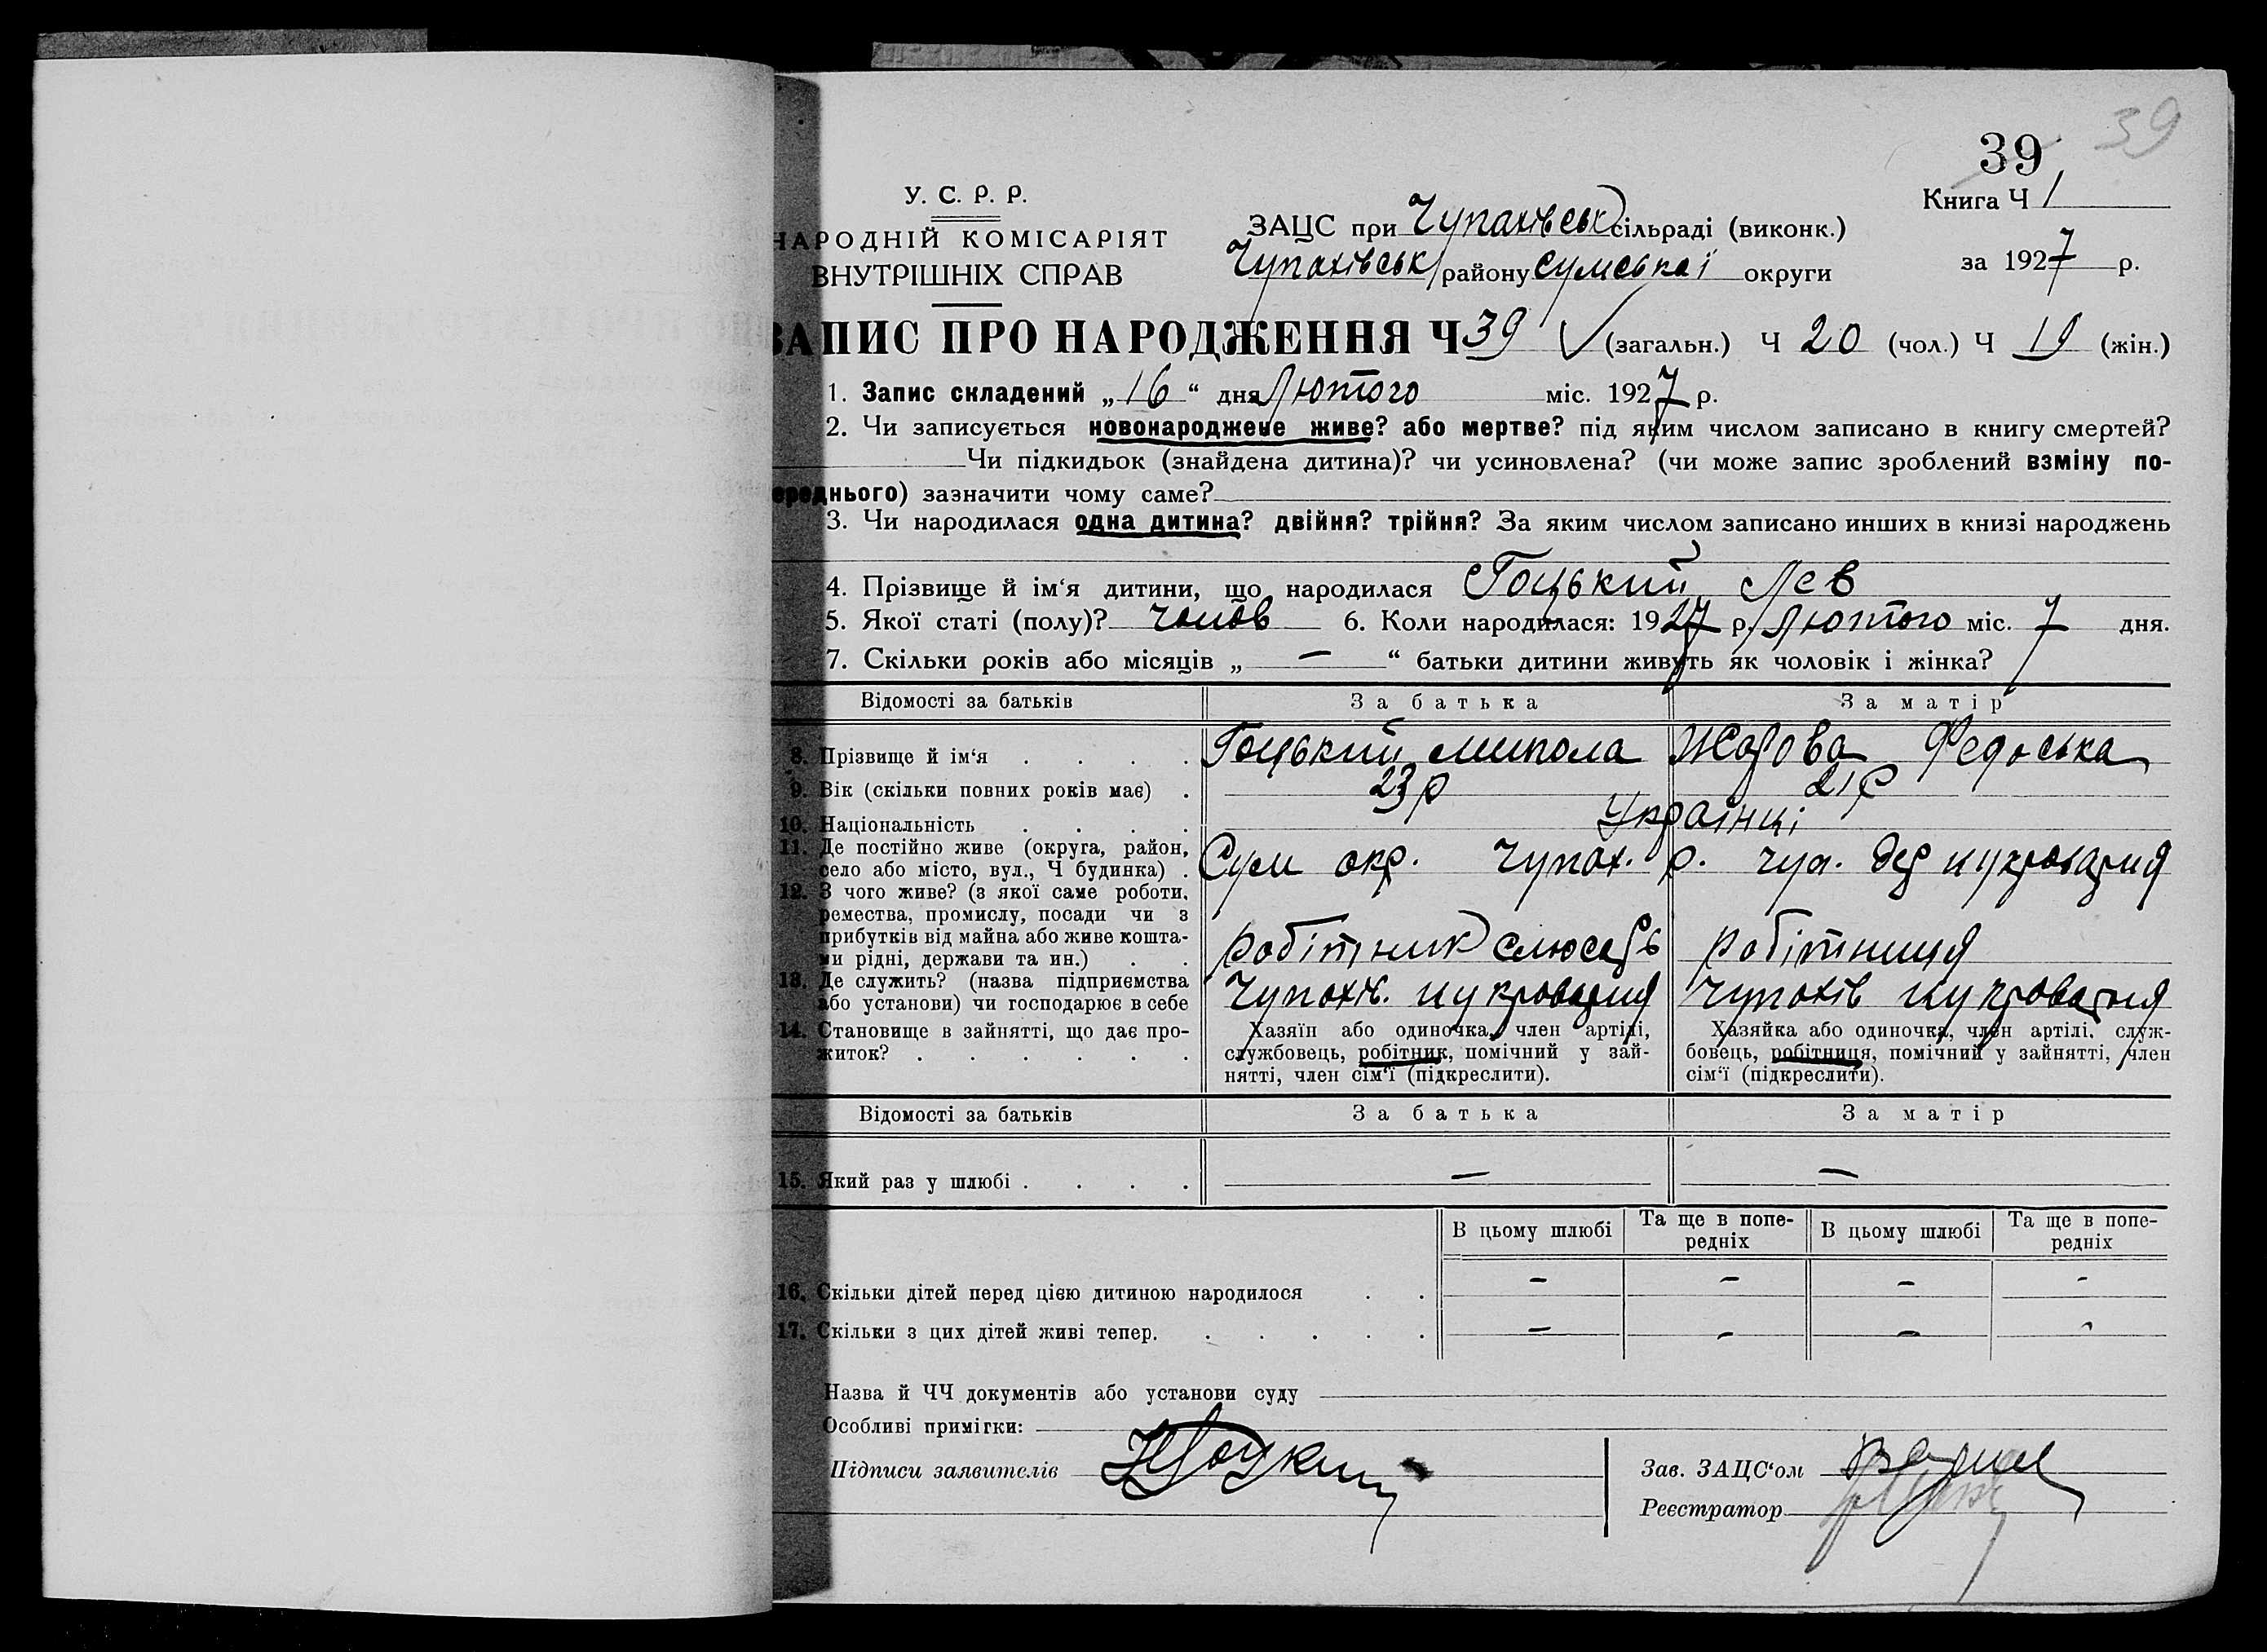 39
39
Книга Ч 1
У. С. Р. Р.
НАРОДНІЙ КОМІСАРІЯТ
ВНУТРІШНІХ СПРАВ
ЗАЦС при Чупахівськ сільраді (виконк.)
Чупахівськ району Сумської округи
за 1927 р.
ЗАПИС ПРО НАРОДЖЕННЯ Ч 39 (загальн.) Ч 20 (чол.) Ч 19 (жін.)
1. Запис складений „16“ дня Лютого міс. 1927 р.
2. Чи записується новонароджене живе? або мертве? під яким числом записано в книгу смертей?
Чи підкидьок (знайдена дитина)? чи усиновлена? (чи може запис зроблений взміну по-
ереднього) зазначити чому саме?
3. Чи народилася одна дитина? двійня? трійня? За яким числом записано инших в книзі народжень
4. Прізвище й ім‘я дитини, що народилася Гоцький Лев
5. Якої статі (полу)? чолов 6. Коли народилася: 1927 р. Лютого міс. 7 дня.
7. Скільки років або місяців „ — “ батьки дитини живуть як чоловік і жінка?
Відомості за батьків За батька За матір
8. Прізвище й ім‘я . . . . Гоцький Микола Жарова Федоська
9. Вік (скільки повних років має) . 23 р 21 р
10. Національність . . . . Українці
11. Де постійно живе (округа, район,
село або місто, вул., Ч будинка) . Сум окр. Чупах. р. Чуп. дер цукроварня
12. З чого живе? (з якої саме роботи,
ремества, промислу, посади чи з
прибутків від майна або живе кошта-
ми рідні, держави та ин.) . . робітник слюсарь робітниця
13. Де служить? (назва підприємства
або установи) чи господарює в себе Чупахів. цукроварня Чупахів цукроварня
14. Становище в зайнятті, що дає про-
житок? . . . . . .
Хазяїн або одиночка, член артілі,
службовець, робітник, помічний у зай-
нятті, член сім‘ї (підкреслити).
Хазяйка або одиночка, член артілі, служ-
бовець, робітниця, помічний у зайнятті, член
сім‘ї (підкреслити).
Відомості за батьків За батька За матір
15. Який раз у шлюбі . . . . — —
В цьому шлюбі Та ще в попе-
редніх В цьому шлюбі Та ще в попе-
редніх
16. Скільки дітей перед цією дитиною народилося . . — — — -
17. Скільки з цих дітей живі тепер. . . . . . — — — -
Назва й ЧЧ документів або установи суду
Особливі примітки:
Підписи заявителів
Зав. ЗАЦС‘ом
Реєстратор